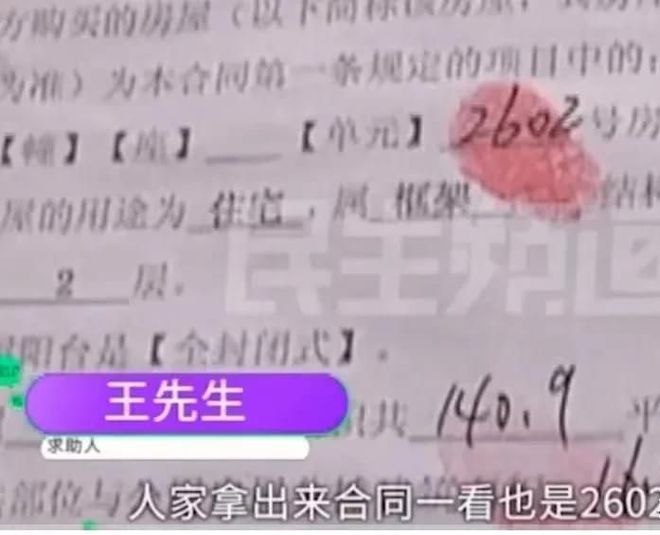 方购买的房屋（以下简称该房屋，其房
为准）为本合同第一条规定的项目中的：
【幢】【座】____【单元】 2602 号房
屋的用途为 住宅 ，属 框架 结构
2 层。
阳台是【全封闭式】。
共 140.9 平
王先生
求助人
部位与公
人家拿出来合同一看也是2602